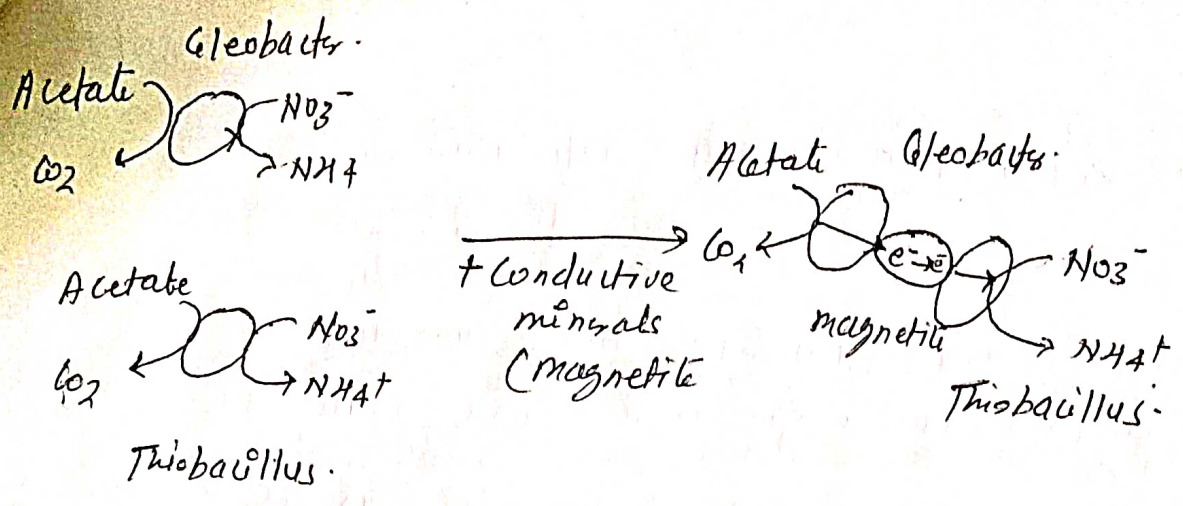 Gleobacter.
Acetate
NO3⁻
CO2
NH4
Acetate
NO3⁻
CO2
NH4⁺
Thiobacillus.
+ Conductive
minerals
(magnetite
Acetate Gleobacter.
CO2
e⁻→e⁻
NO3⁻
magnetite
NH4⁺
Thiobacillus.